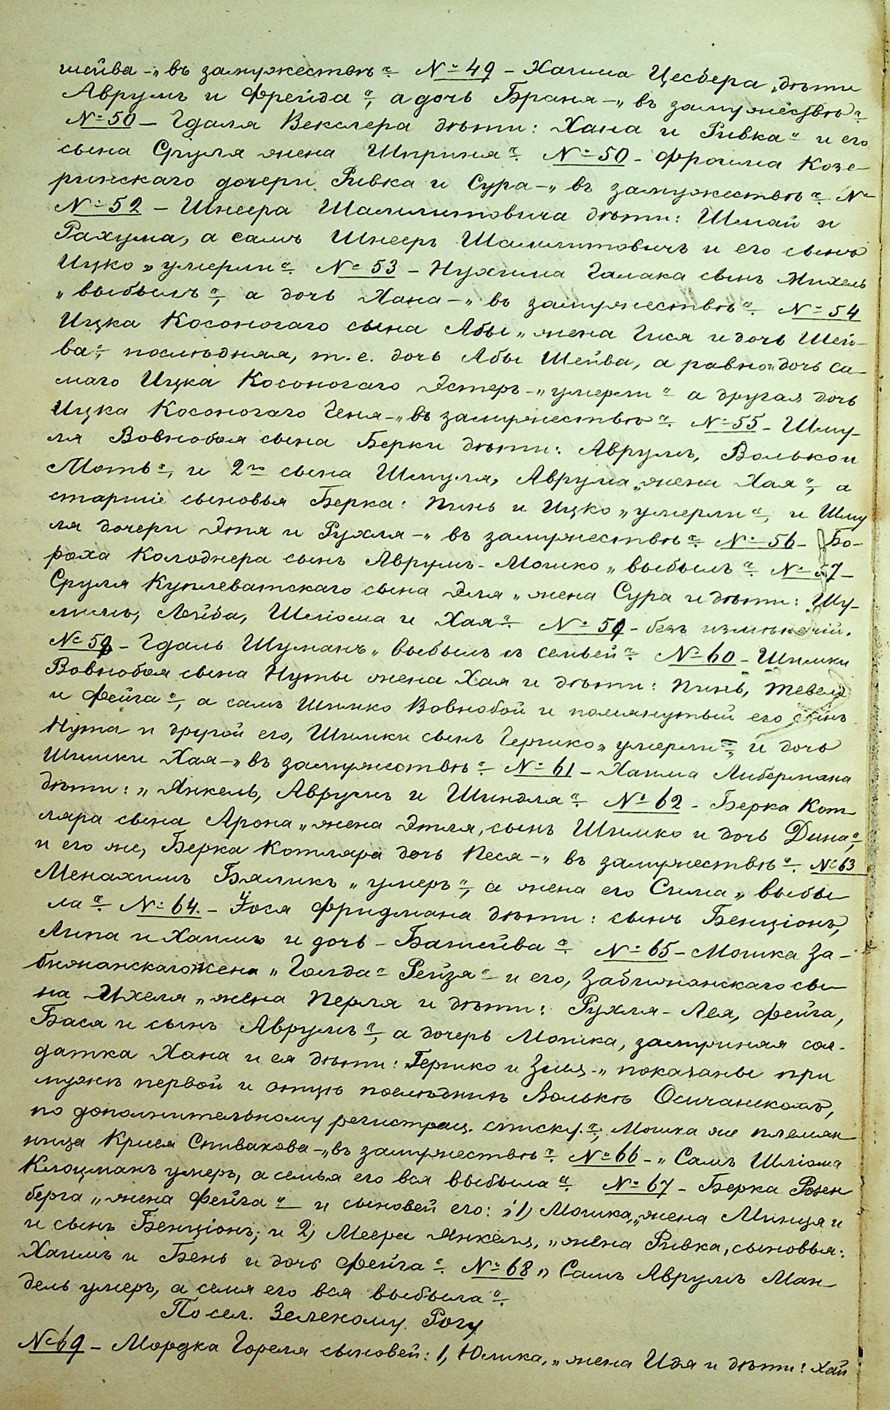 шейва -„ въ замужествѣ“. № 49 - Хаима Цесбера „дѣти
Аврумъ и Фрейда“, а дочь Браня -„ въ замужествѣ“.
№ 50 - Гдаля Векслера дѣти: Хана и Ривка“ и его
сына Сруля жена Шприня“. № 50 - Фроима Козе-
ринскаго дочери Ривка и Сура -„ въ замужествѣ“. №
№ 52 - Шнеера Шамлитовича дѣти: Шмай и
Рахума, а самъ Шнееръ Шамлитовичъ и его сынъ
Ицко „умерли“. № 53 - Нухима Галака сынъ Михель
„выбылъ“, а дочь Хана -„ въ замужествѣ“. № 54
Ицка Косоногаго сына Абы „жена Гися и дочь Шей-
ва“; послѣдняя, т. е. дочь Абы Шейва, а равно и дочь са-
маго Ицка Косоногаго Эстеръ -„умерли“ а другая дочь
Ицка Косоногаго Геня -„въ замужествѣ“. № 55 - Шму-
ля Вовнобоя сына Берки дѣти: Аврумъ, Волько и
Моть“, и 2го сына Шмуля, Аврума „жена Хая“, а
старшіе сыновья Берка: Пинь и Ицко „умерли“, и Шму
ля дочери Эня и Рухля -„ въ замужествѣ“. № 56 - Бо-
роха Колоднера сынъ Аврумъ-Мошко „выбылъ“. № 57 -
Сруля Куплеватскаго сына Эля „жена Сура и дѣти: Шу-
лимъ, Лейба, Шліома и Хая“. № 59 - безъ измѣненій.
№ 59 - Гдаль Шуманъ „выбылъ съ семьей“. № 60 - Шимки
Вовнобоя сына Нуты жена Хая и дѣти: Пинь, Тевель
и Фейга“, а самъ Шимко Вовнобой и помянутый его сынъ
Нута и другой его, Шимки сынъ Гершко „умерли“, и дочь
Шимки Хая -„ въ замужествѣ“. № 61 - Хаима Либермана
дѣти: „Янкель, Аврумъ и Шиндля“. № 62 - Берка Кот-
ляра сына Арона „жена Этля, сынъ Шимко и дочь Дина“,
и его же, Берка Котляра дочь Песя -„ въ замужествѣ“. № 63
Менахимъ Бяликъ „умеръ“, а жена его Сима „выбы
ла“. № 64. - Іося Фридмана дѣти: сынъ Бенціонъ,
Липа и Хаимъ и дочь - Батшейва“. № 65 - Мошка За-
бужанскаго жена „Голда-Рейзя“ и его, Забужанскаго сы-
на Ихеля „жена Перля и дѣти: Рухля-Лея, Фейга,
Бася и сынъ Аврумъ“, а дочерь Мошка, замужняя сол-
датка Хана и ея дѣти: Гершко и Зись -„ показаны при
мужѣ первой и отцѣ послѣднихъ Волькѣ Осичанскомъ,
по дополнительному регистрац. списку“, Мошка же племян-
ница Крися Спивакова -„въ замужествѣ“. № 66 -„ Самъ Шліома
Клоцманъ умеръ, а семья его вся выбыла“. № 67 - Берка Розен
берга „жена Фейга“ и сыновей его: 1, Мошка, „жена Минця и
и сынъ Бенціонъ, и 2, Меера Янкеля, „жена Ривка, сыновья:
Хаимъ и Бень и дочь Фейга“. № 68 „ Самъ Аврумъ Ман-
дель умеръ, а семя его вся выбыла“.
По сел. Зеленому Рогу
№ 69 - Мордка Гореля сыновей: 1, Юлика, „жена Идя и дѣти: Хай